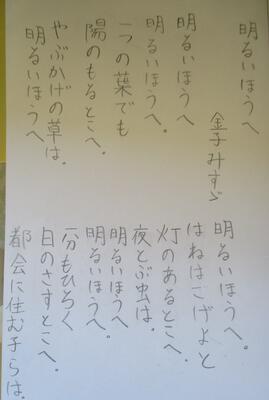 明るいほうへ
金子みすゞ
明るいほうへ
明るいほうへ。
一つの葉でも
陽のもるとこへ。
やぶかげの草は。
明るいほうへ
明るいほうへ。
はねはこげよと
灯のあるとこへ。
夜とぶ虫は。
明るいほうへ
明るいほうへ。
一分もひろく
日のさすとこへ。
都会に住む子らは。